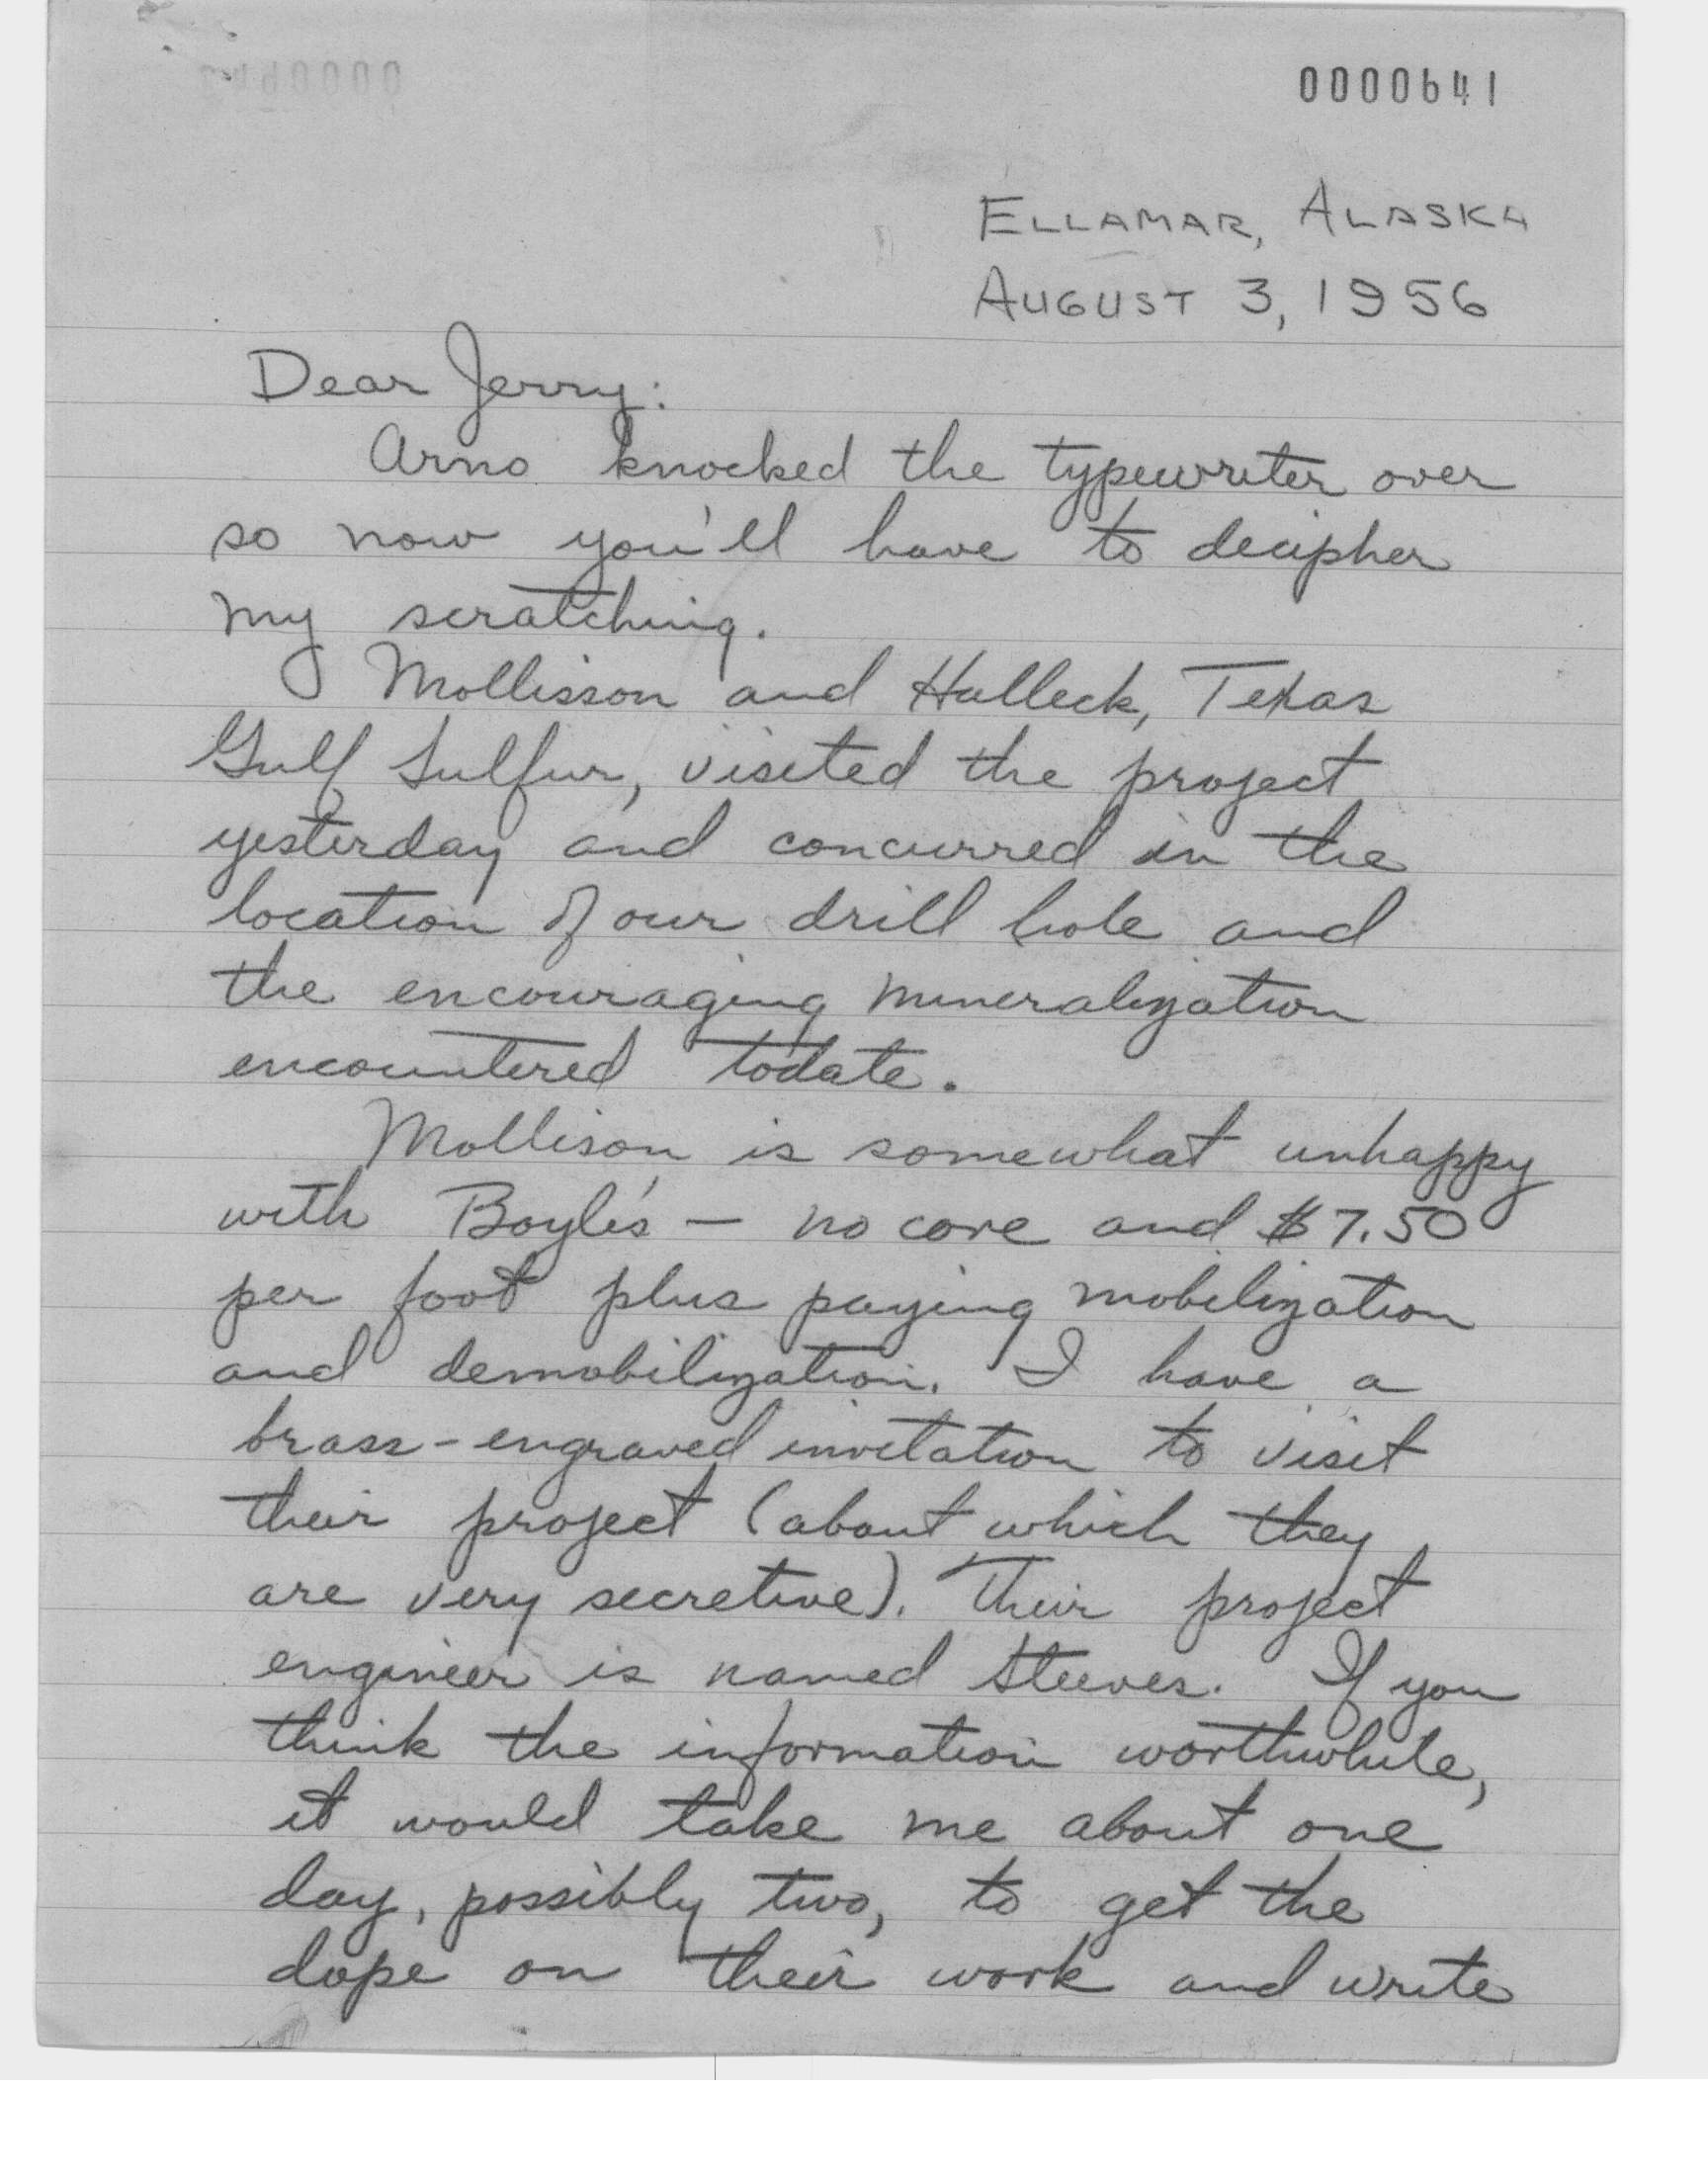 0000641
ELLAMAR, ALASKA
AUGUST 3, 1956
Dear Jerry:
Arno knocked the typewriter over
so now you'll have to decipher
my scratching.
Mollisson and Halleck, Texas
Gulf Sulfur, visited the project
yesterday and concurred in the
location of our drill hole and
the encouraging mineralization
encountered todate.
Mollison is somewhat unhappy
with Boyle's — no core and $7.50
per foot plus paying mobilization
and demobilization. I have a
brass-engraved invitation to visit
their project (about which they
are very secretive). Their project
engineer is named Steeves. If you
think the information worthwhile,
it would take me about one
day, possibly two, to get the
dope on their work and write